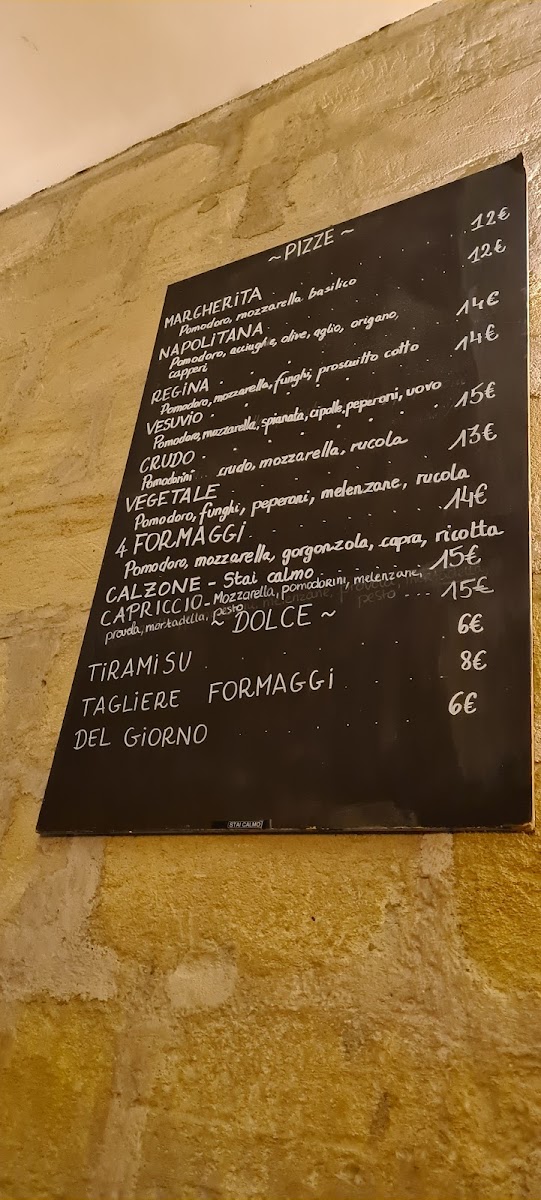 ~ PIZZE ~
MARGHERITA . . . . . 12€
Pomodoro, mozzarella basilico
NAPOLITANA . . . . . 12€
Pomodoro, acciughe, olive, aglio, origano,
capperi
REGINA . . . . . 14€
Pomodoro, mozzarella, funghi, prosciutto cotto
VESUVIO . . . . . 14€
Pomodoro, mozzarella, spianata, cipolle, peperoni, uovo
CRUDO . . . . . 15€
Pomodorini crudo, mozzarella, rucola
VEGETALE . . . . . 13€
Pomodoro, funghi, peperoni, melenzane, rucola
4 FORMAGGI . . . . . 14€
Pomodoro, mozzarella, gorgonzola, capra, ricotta
CALZONE - Stai calmo . . . . . 15€
CAPRICCIO - Mozzarella, pomodorini, melenzane, . . . 15€
provola, mortadella, pesto
~ DOLCE ~
TIRAMISU . . . . . 6€
TAGLIERE FORMAGGI . . . . . 8€
DEL GIORNO . . . . . 6€
STAI CALMO